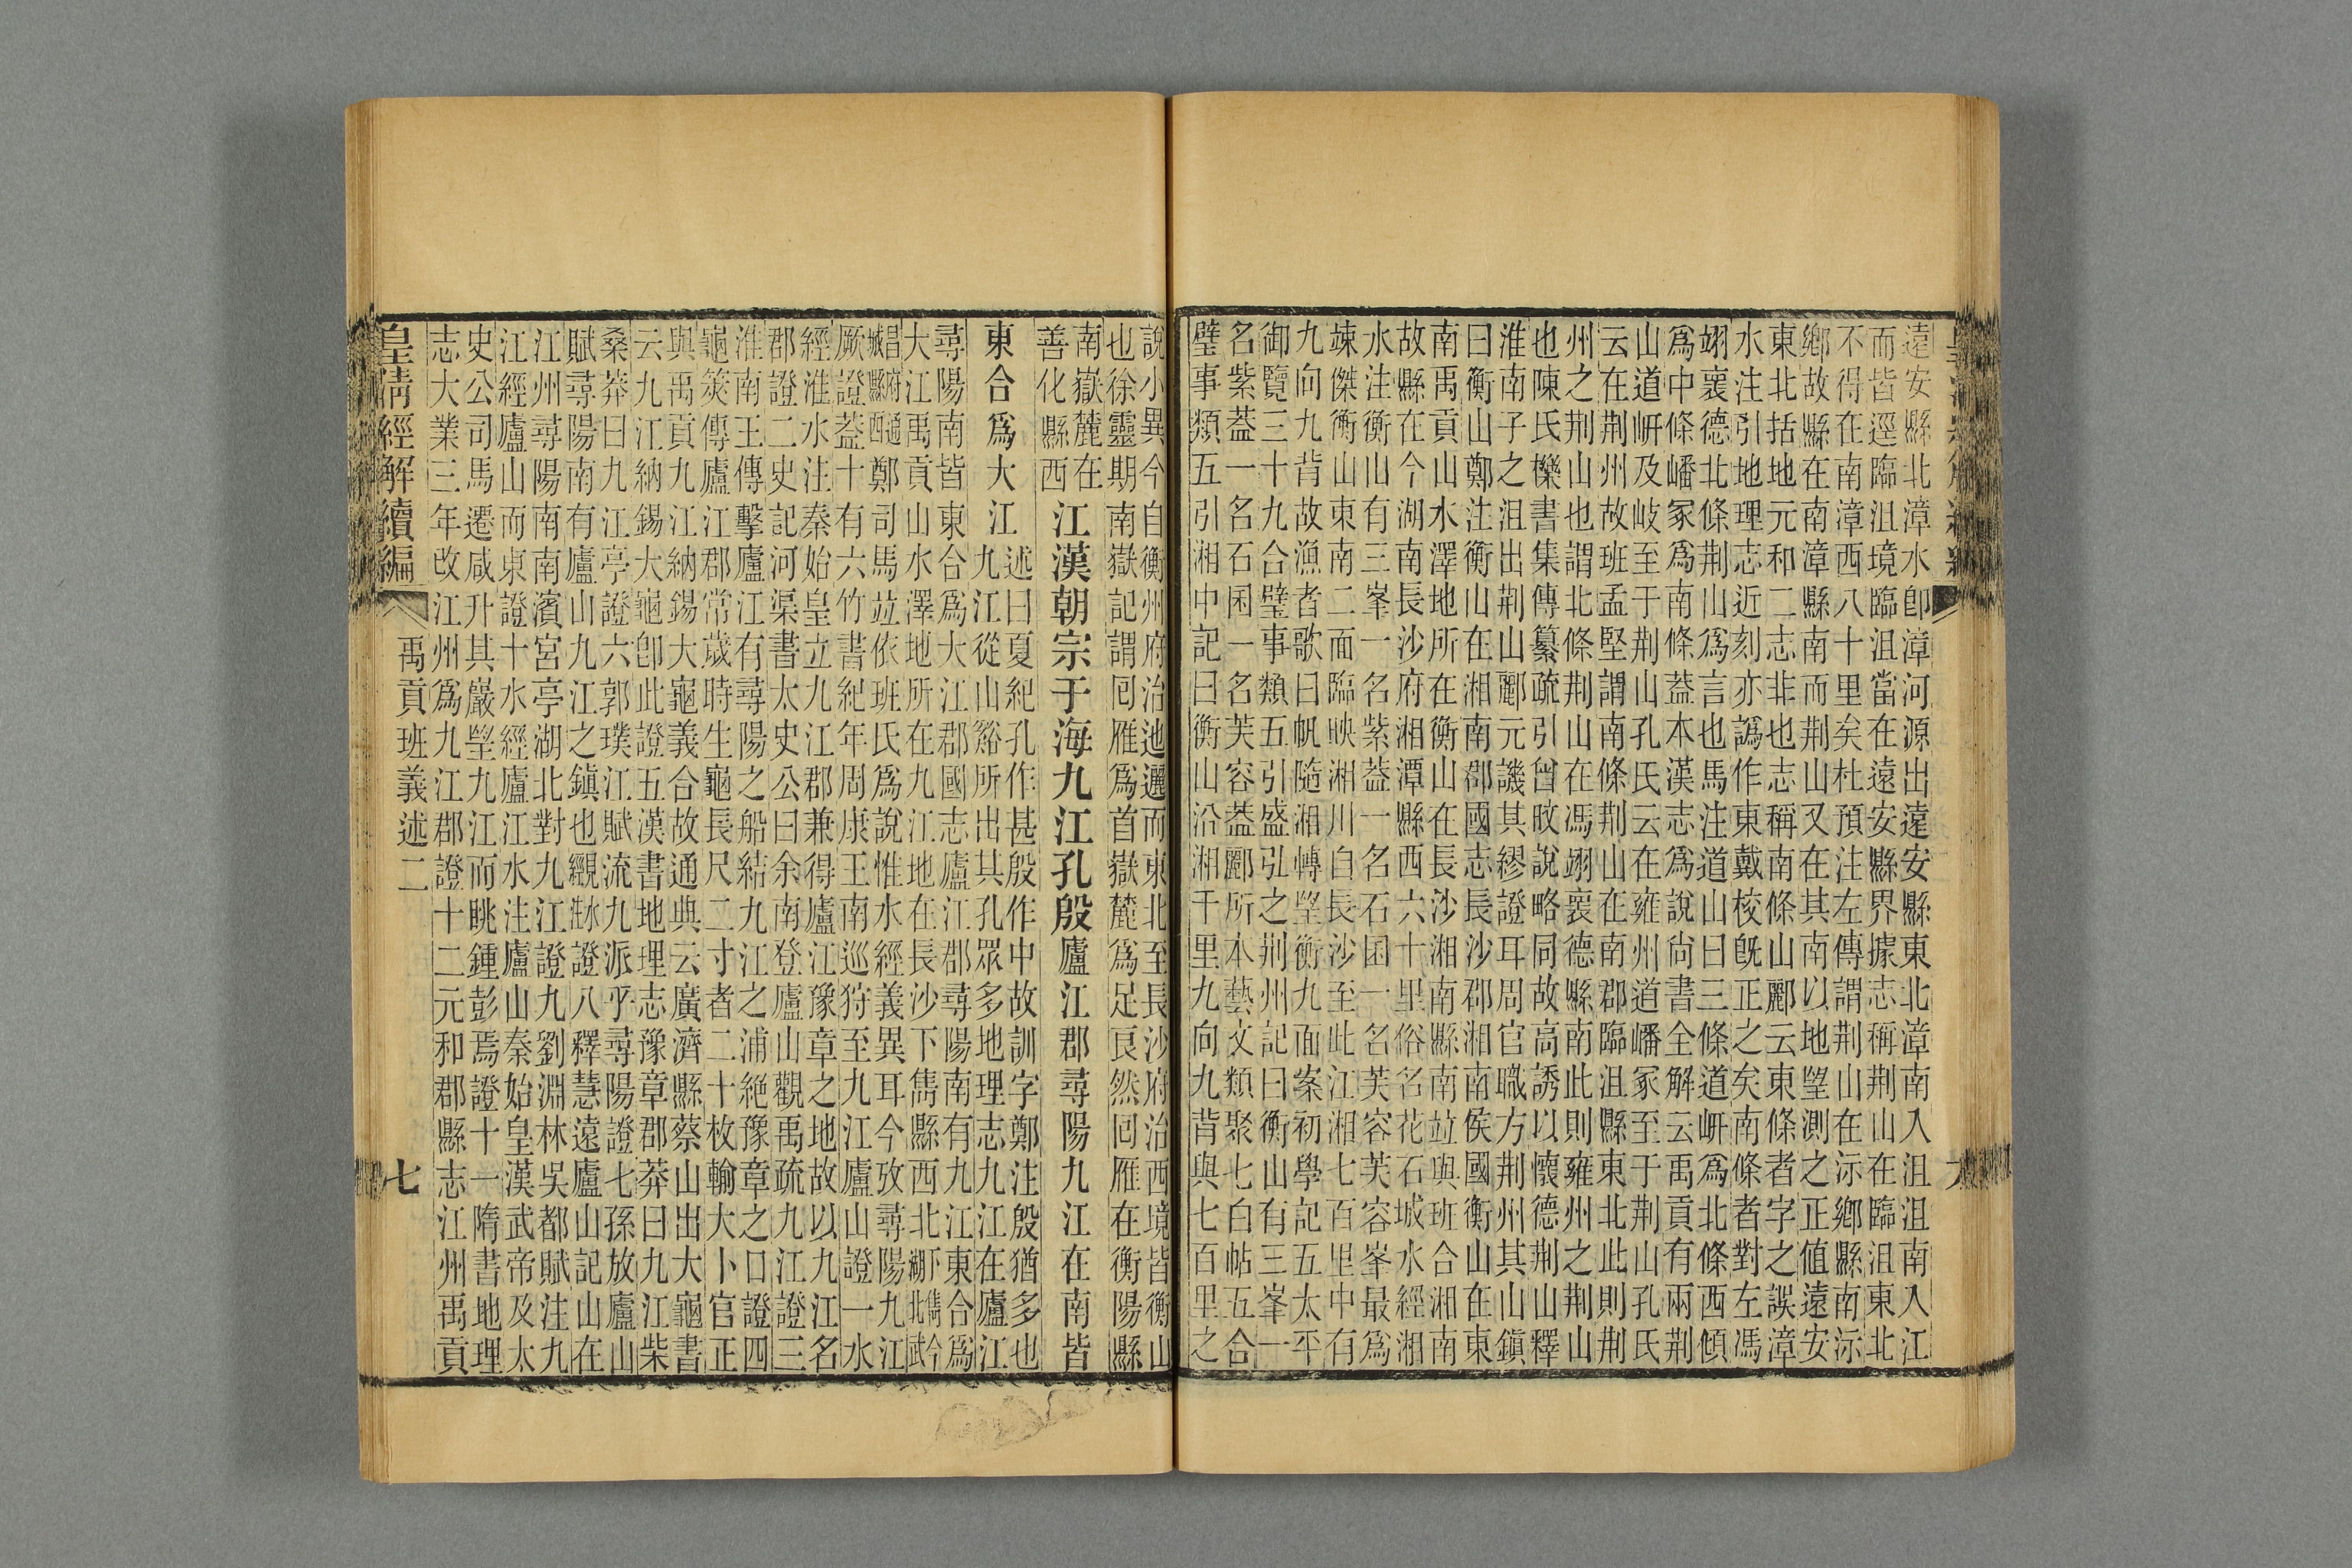 遠安縣北漳水卽漳河源出遠安縣東北漳南入沮沮南入江
而皆逕臨沮境臨沮當在遠安縣界據志稱荆山在臨沮東北
不得在南漳西八十里矣杜預注左傳謂荆山在沶鄉縣南沶
鄉故縣在南漳縣南而荆山又在其南以地望測之正值遠安
東北括地元和二志非也志稱南條山酈云東條者字之誤漳
水注引地理志近刻亦譌作東戴校旣正之矣南條者對左馮
翊襄德北條荆山爲言也馬注道山曰三條道岍爲北條西傾
爲中條嶓冢爲南條葢本漢志爲說尙書全解云禹貢有兩荆
山道岍及岐至于荆山孔氏云在雍州道嶓冢至于荆山孔氏
云在荆州故班孟堅謂南條荆山在南郡臨沮縣東北此則荆
州之荆山也謂北條荆山在馮翊襄德縣南此則雍州之荆山
也陳氏櫟書集傳纂疏引曾旼說略同故高誘以懷德荆山釋
淮南子之沮出荆山酈元譏其繆證耳周官職方荆州其山鎮
曰衡山鄭注衡山在湘南郡國志長沙郡湘南侯國衡山在東
南禹貢山水澤地所在衡山在長沙湘南縣南竝與班合湘南
故縣在今湖南長沙府湘潭縣西六十里俗名花石城水經湘
水注衡山有三峯一名紫葢一名石囷一名芙容芙容峯最爲
竦傑衡山東南二面臨映湘川自長沙至此江湘七百里中有
九向九背故漁者歌曰帆隨湘轉望衡九面案初學記五太平
御覽三十九合璧事類五引盛弘之荆州記曰衡山有三峯一
名紫葢一名石囷一名芙容葢酈所本藝文類聚七白帖五合
璧事類五引湘中記曰衡山沿湘千里九向九背與七百里之
說小異今自衡州府治迆邐而東北至長沙府治西境皆衡山
也徐靈期南嶽記謂回雁爲首嶽麓爲足良然回雁在衡陽縣
南嶽麓在
善化縣西
江漢朝宗于海九江孔殷廬江郡尋陽九江在南皆
東合爲大江
述曰夏紀孔作甚殷作中故訓字鄭注殷猶多也
九江從山谿所出其孔眾多地理志九江在廬江
尋陽南皆東合爲大江郡國志廬江郡尋陽南有九江東合爲
大江禹貢山水澤地所在九江地在長沙下雋縣西北下雋今武
昌府通城縣西鄭司馬竝依班氏爲說惟水經義異耳今攷尋陽九江
厥證葢十有六竹書紀年周康王南巡狩至九江廬山證一水
經淮水注秦始皇立九江郡兼得廬江豫章之地故以九江名
郡證二史記河渠書太史公曰余南登廬山觀禹疏九江證三
淮南王傳擊廬江有尋陽之船結九江之浦絶豫章之口證四
龜筴傳廬江郡常歲時生龜長尺二寸者二十枚輸大卜官正
與禹貢九江納錫大龜義合故通典云廣濟縣蔡山出大龜書
云九江納錫大龜卽此證五漢書地理志豫章郡莽曰九江柴
桑莽曰九江亭證六郭璞江賦流九派乎尋陽證七孫放廬山
賦尋陽南有廬山九江之鎮也證八釋慧遠廬山記山在
江州尋陽南南濱宮亭湖北對九江證九劉淵林吳都賦注九
江經廬山而東證十水經廬江水注廬山秦始皇漢武帝及太
史公司馬遷咸升其巖望九江而眺鍾彭焉證十一隋書地理
志大業三年改江州爲九江郡證十二元和郡縣志江州禹貢
皇清經解續編
禹貢班義述二
七